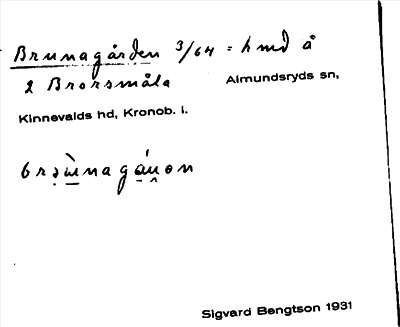 Brunagården 3/64 = hmd å
2 Brorsmåla Almundsryds sn,
Kinnevalds hd, Kronob. l.
Sigvard Bengtson 1931